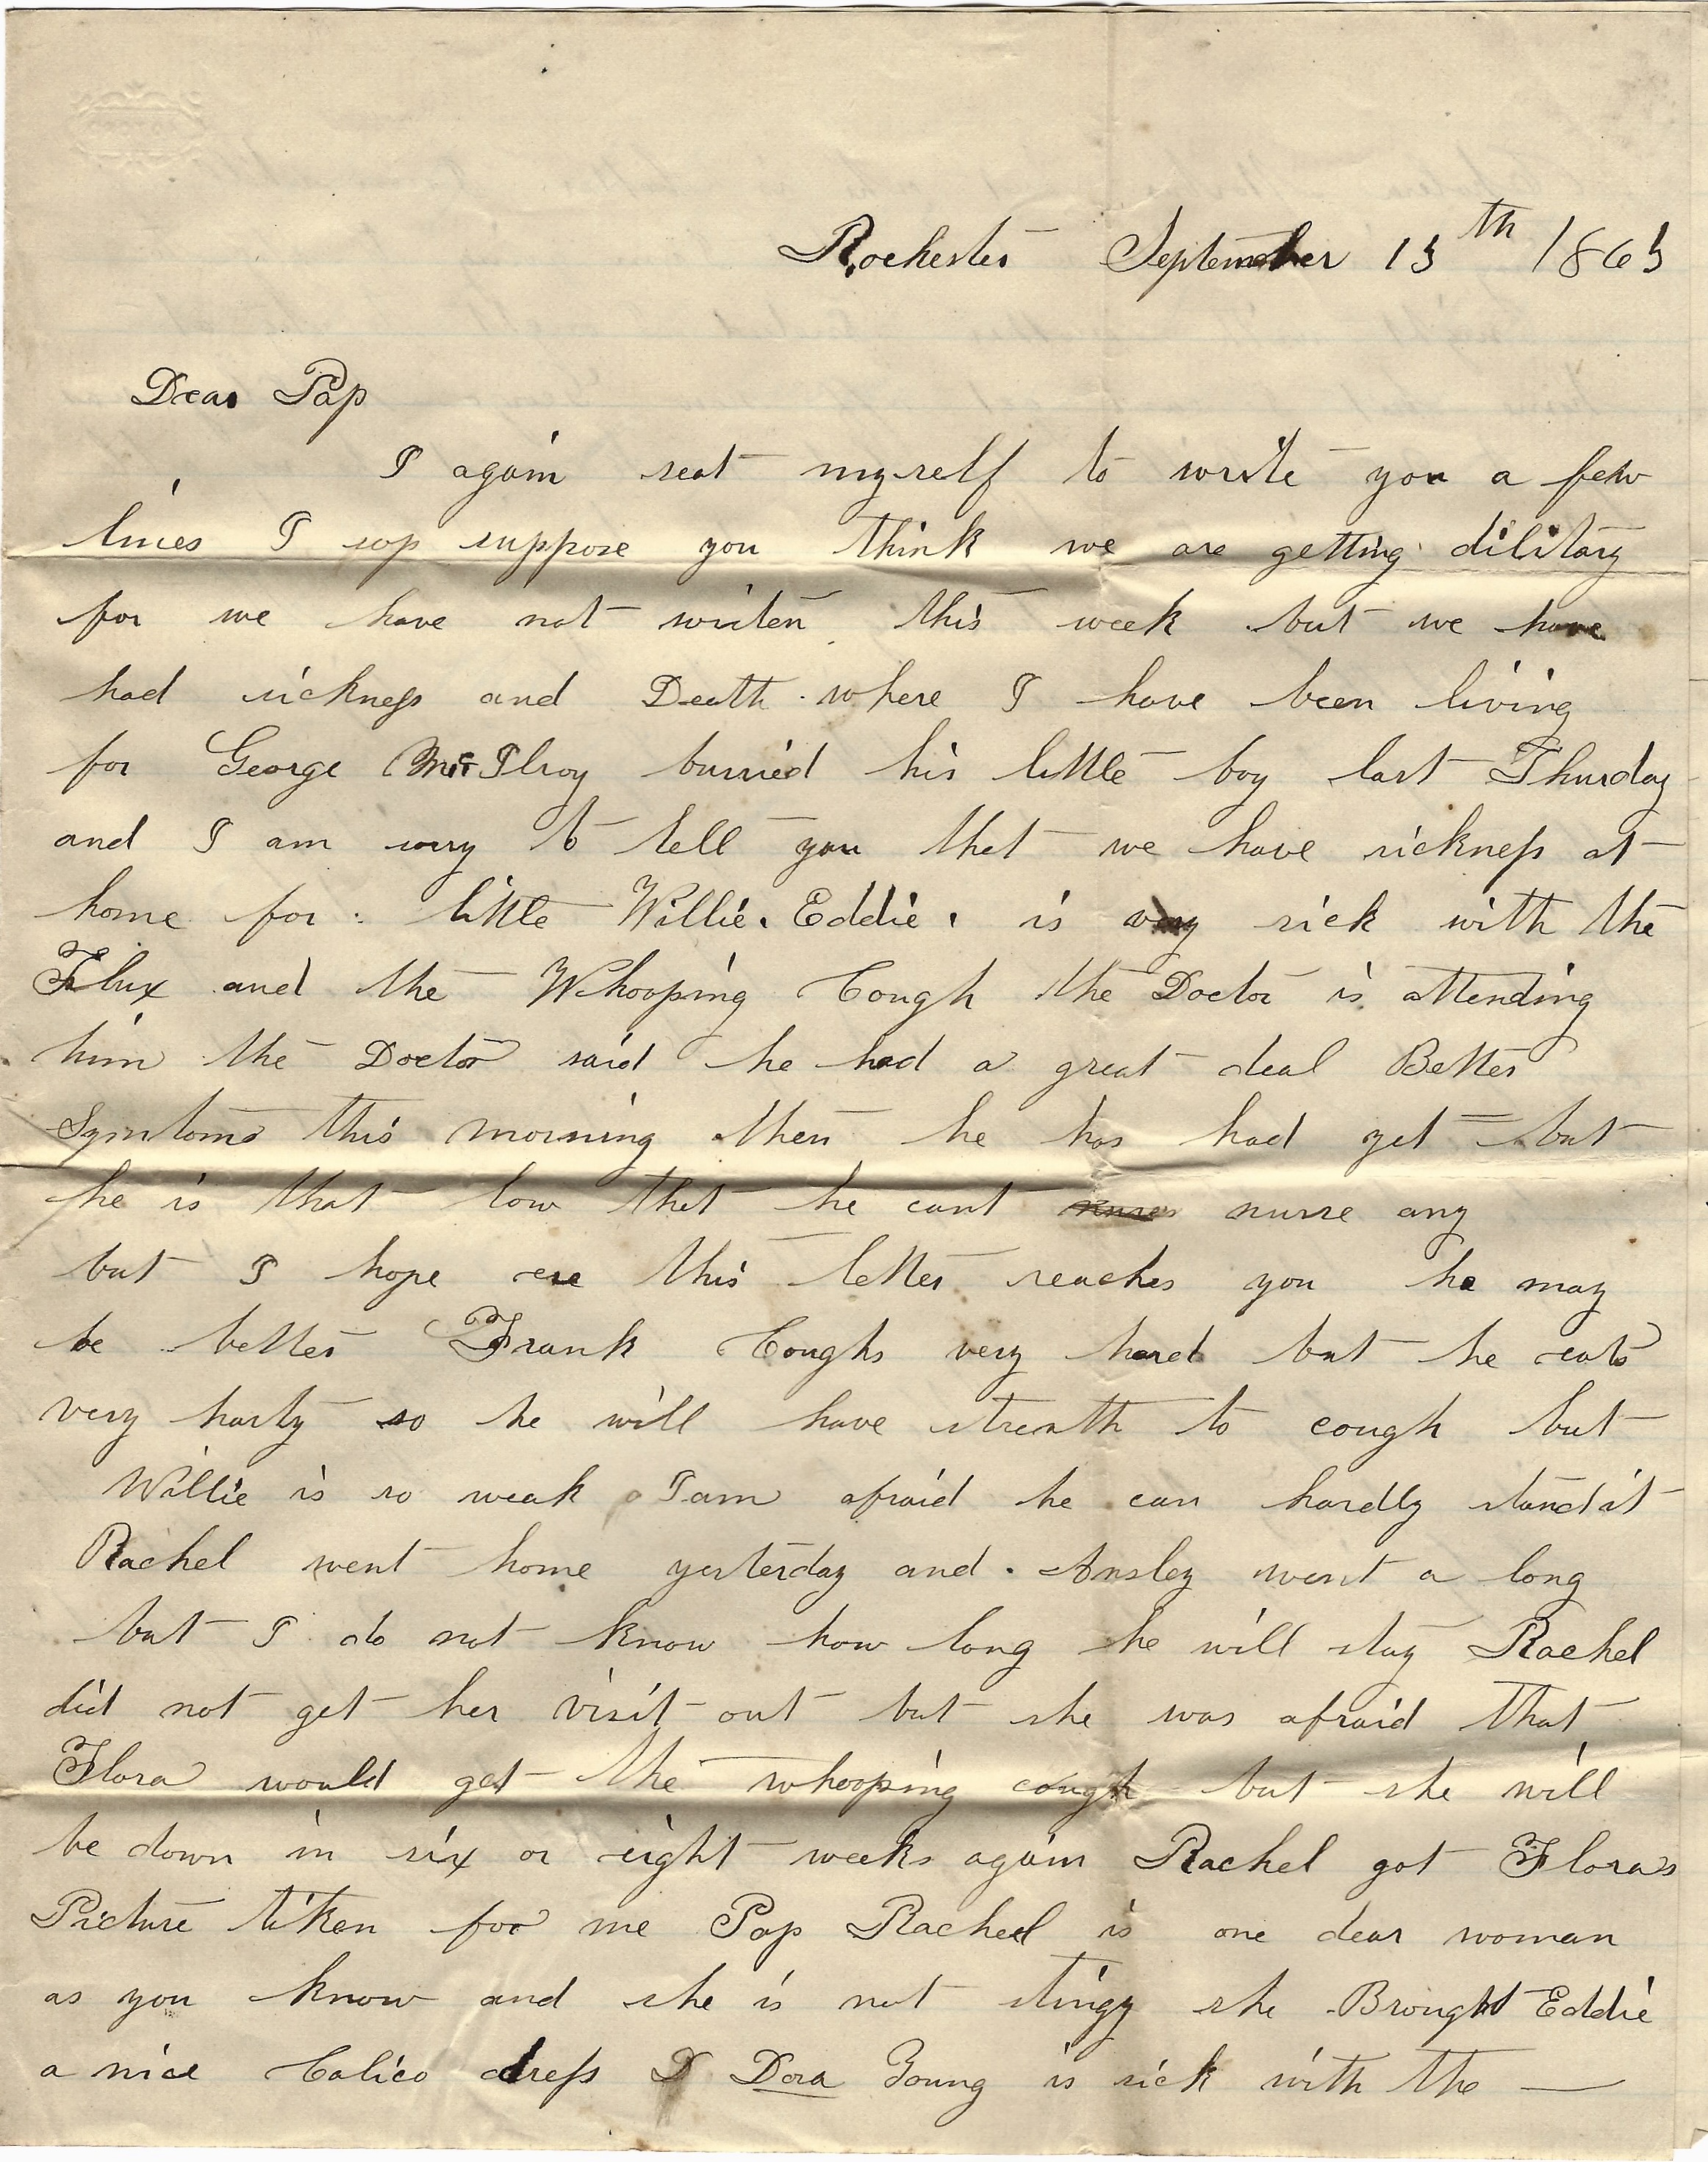 Rochester September 13th 1863
Dear Pap
I again seat myself to write you a few
lines I sop suppose you think we are getting dilitary
for we have not writen this week but we have
had sickness and Death where I have been living
for George McIlroy burried his little boy last Thurday
and I am sorry to tell you that we have sickness at
home for little Willie. Eddie. is very sick with the
Flux and the Whooping Cough the Doctor is attending
him the Doctor said he had a great deal Better
Symtoms this morning then he has had yet = but
he is that low that he cant nurse nurse any
but I hope ere this letter reaches you he may
be better Frank Coughs very hard but he eats
very harty so he will have strenth to cough but
Willie is so weak I am afraid he can hardly stand it
Rachel went home yesterday and Ansley went a long
but I do not know how long he will stay Rachel
did not get her visit out but she was afraid that
Flora would get the whooping cough but she will
be down in six or eight weeks again Rachel got Floras
Picture taken for me Pap Rachel is one dear woman
as you know and she is not stingy she Brought Eddie
a nice Calico dress D Dora Young is sick with the —